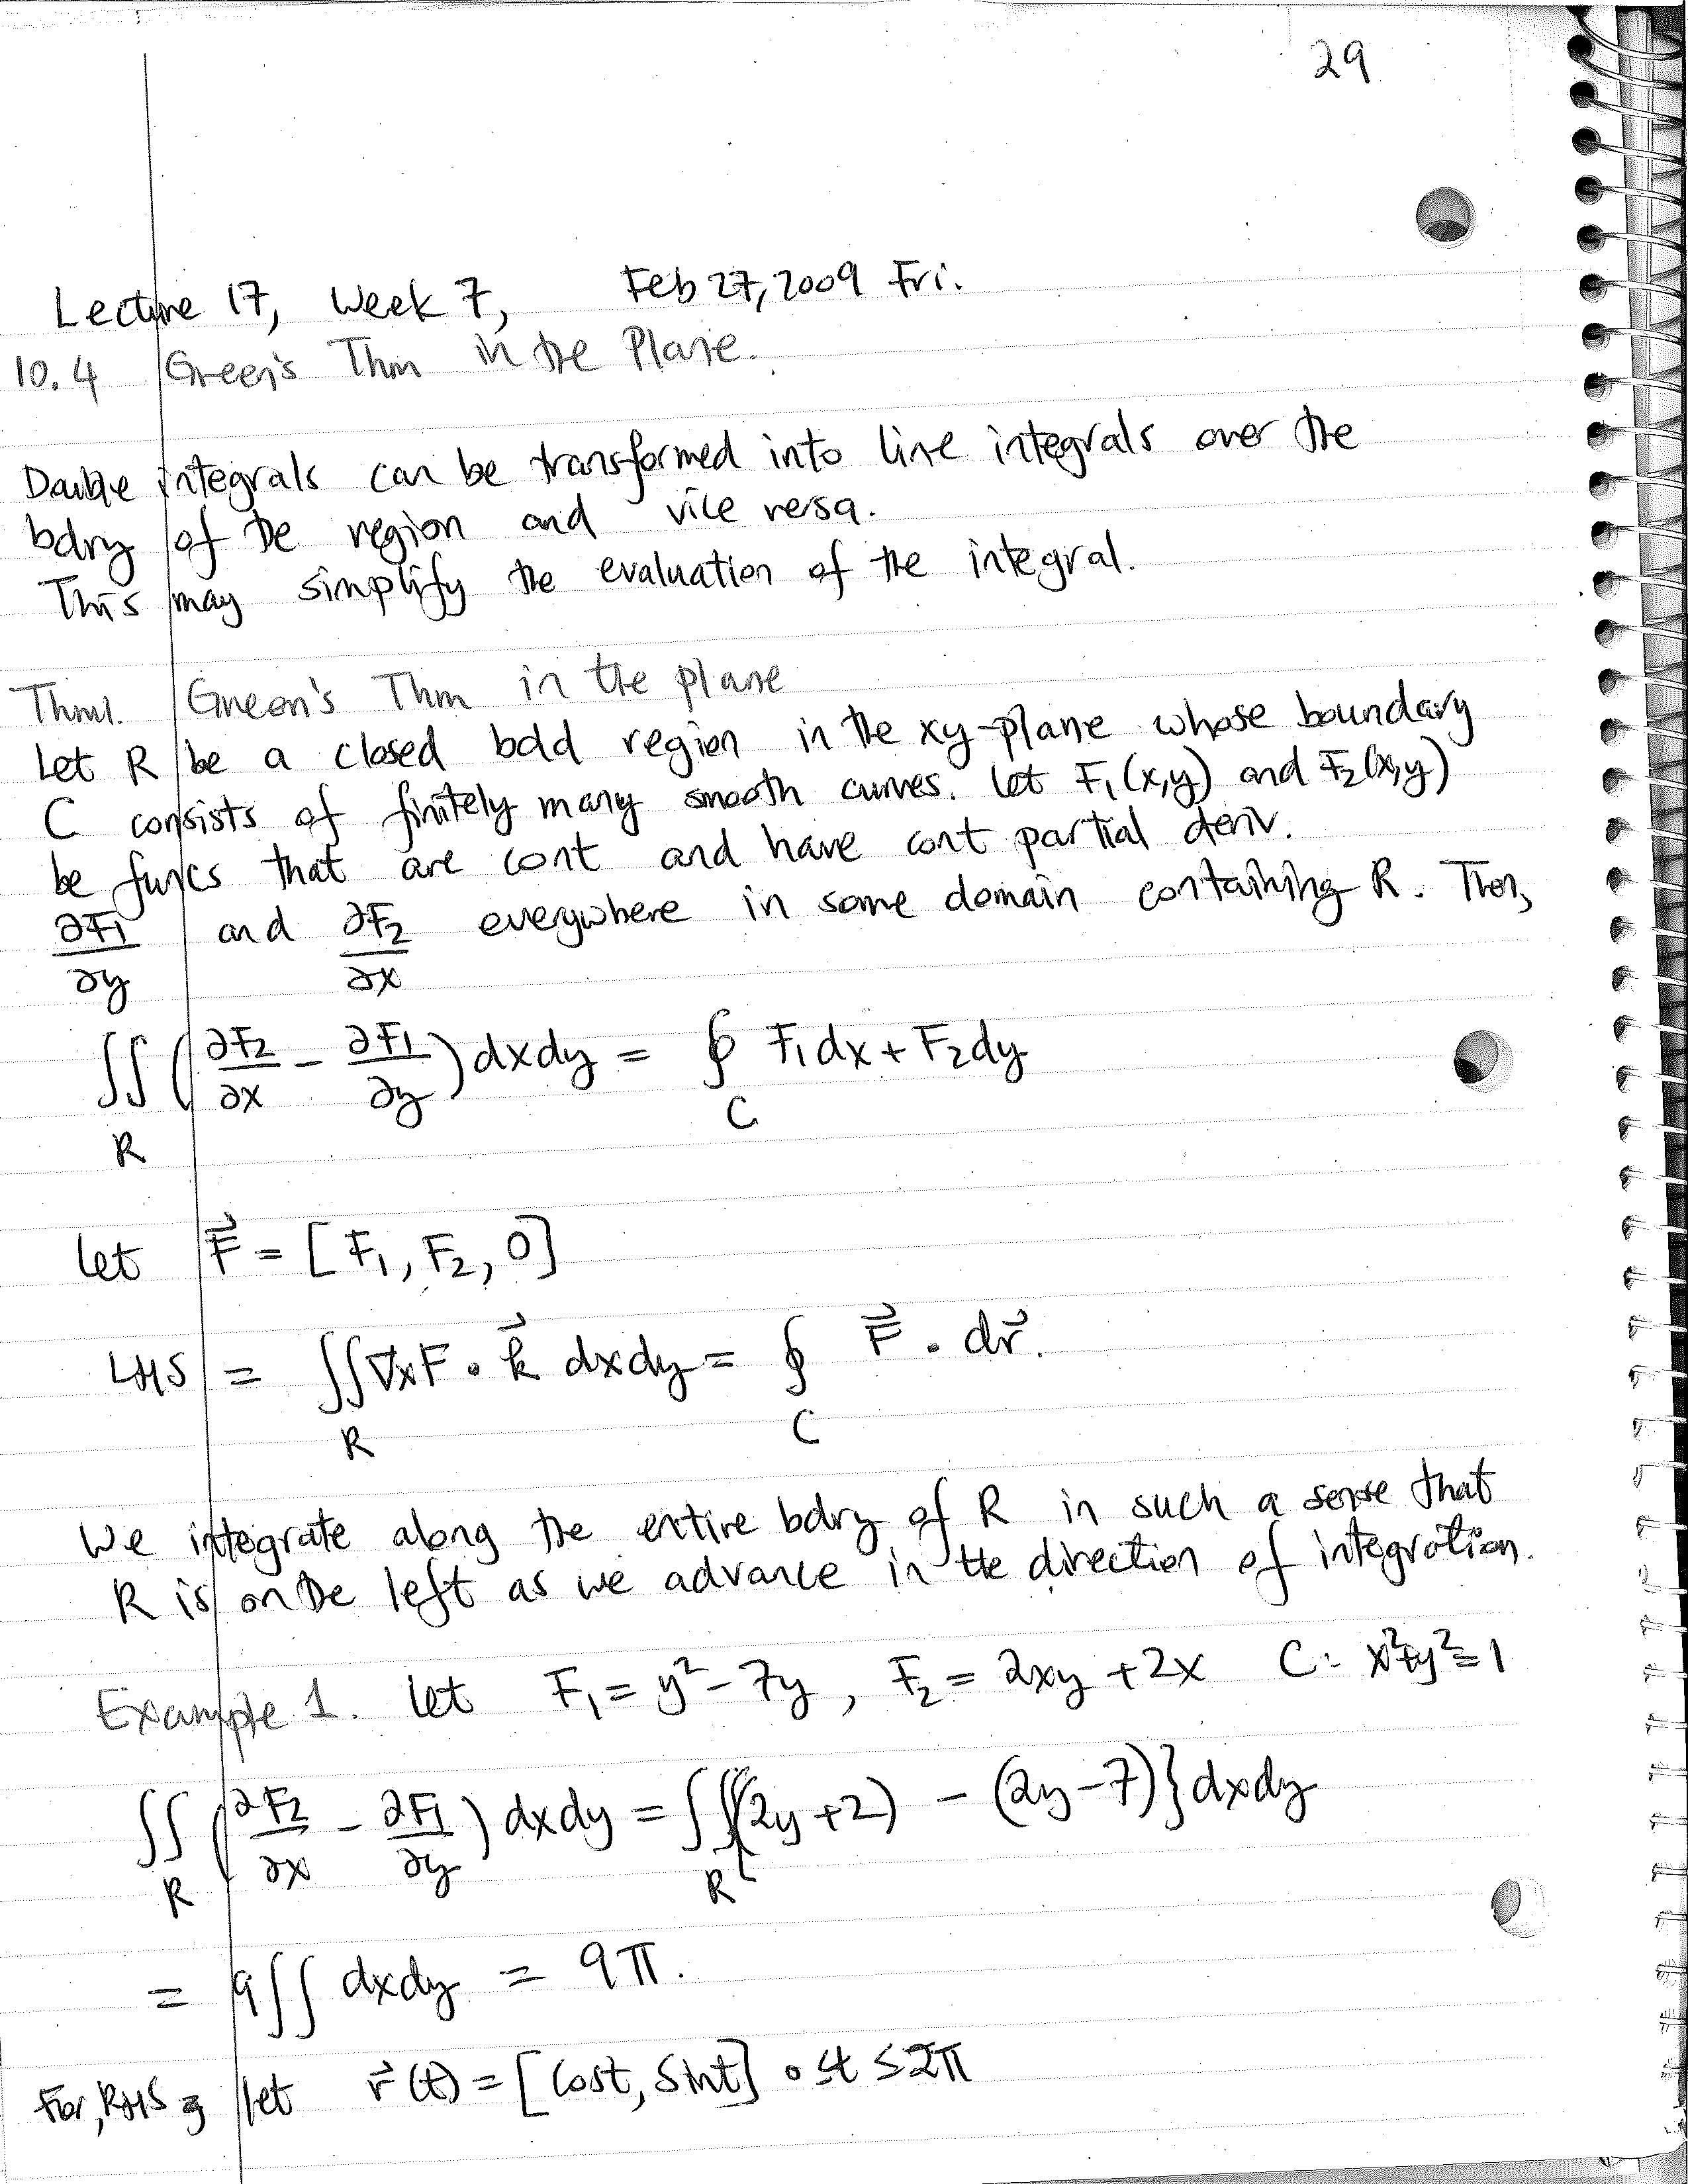 29
Lecture 17, Week 7, Feb 27, 2009 Fri.
10.4 Green's Thm in the Plane.
Double integrals can be transformed into line integrals over the
bdry of the region and vice versa.
This may simplify the evaluation of the integral.
Thm1. Green's Thm in the plane
Let R be a closed bdd region in the xy-plane whose boundary
C consists of finitely many smooth curves. Let F₁(x,y) and F₂(x,y)
be funcs that are cont and have cont partial deriv.
∂F₁/∂y and ∂F₂/∂x everywhere in some domain containing R. Then,
∬_R (∂F₂/∂x - ∂F₁/∂y) dxdy = ∮_C F₁dx + F₂dy
Let F⃗ = [F₁, F₂, 0]
LHS = ∬_R ∇×F • k⃗ dxdy = ∮_C F⃗ • dr⃗.
We integrate along the entire bdry of R in such a sense that
R is on the left as we advance in the direction of integration.
Example 1. Let F₁ = y² - 7y, F₂ = 2xy + 2x C: x²+y²=1
∬_R (∂F₂/∂x - ∂F₁/∂y) dxdy = ∬_R {(2y+2) - (2y-7)} dxdy
= 9∬ dxdy = 9π.
For, RHS, let r⃗(t) = [cost, sint] 0≤t≤2π